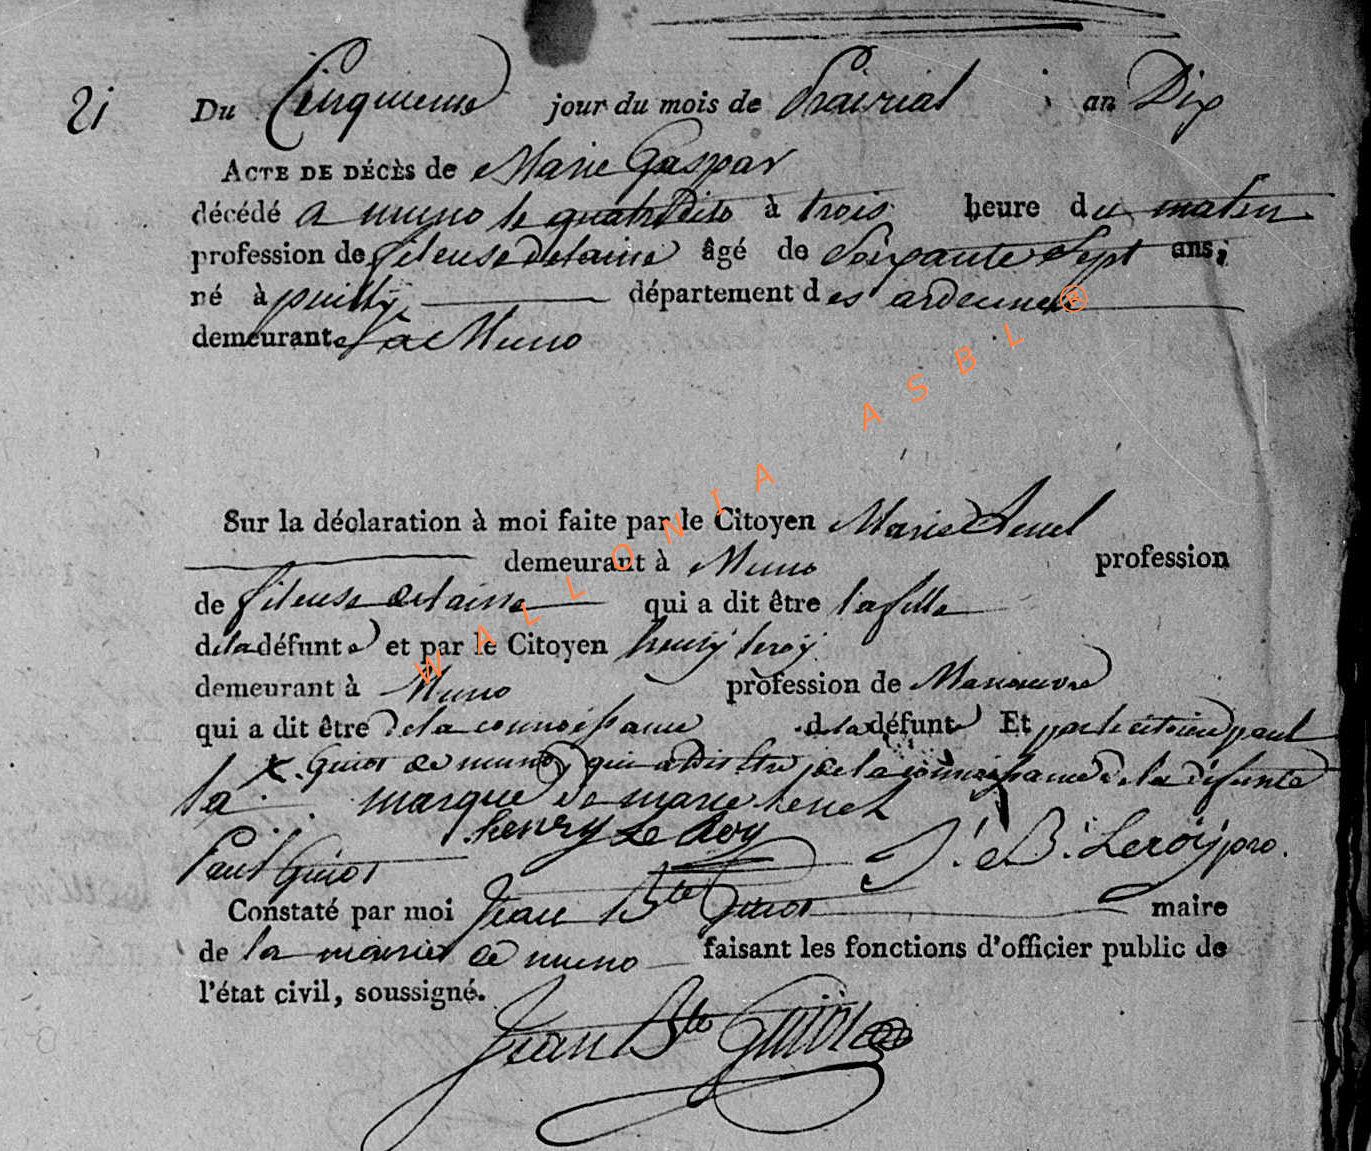 21 Du Cinquieme jour du mois de Prairial an Dix
ACTE DE DÉCÈS de Marie Gaspar
décédé a muno le quatre dito à trois heure du matin
profession de fileuse de laine âgé de Soixante Sept ans,
né à puilly département des ardennes
demeurante a Muno
Sur la déclaration à moi faite par le Citoyen Marie henel
demeurant à Muno profession
de fileuse de laine qui a dit être la fille
de la défunte et par le Citoyen henry leroy
demeurant à Muno profession de Manoeuvre
qui a dit être de la connoissance de la défunte Et par le citoien paul
Guiot de muno qui a dit etre de la connoissance de la défunte
la X marque de marie henel
henry Le Roy
Paul Guiot J. B. Leroy
Constaté par moi Jean Bte Guiot maire
de la mairie de muno faisant les fonctions d'officier public de
l'état civil, soussigné.
Jean Bte Guiot
WALLONIA ASBL ®